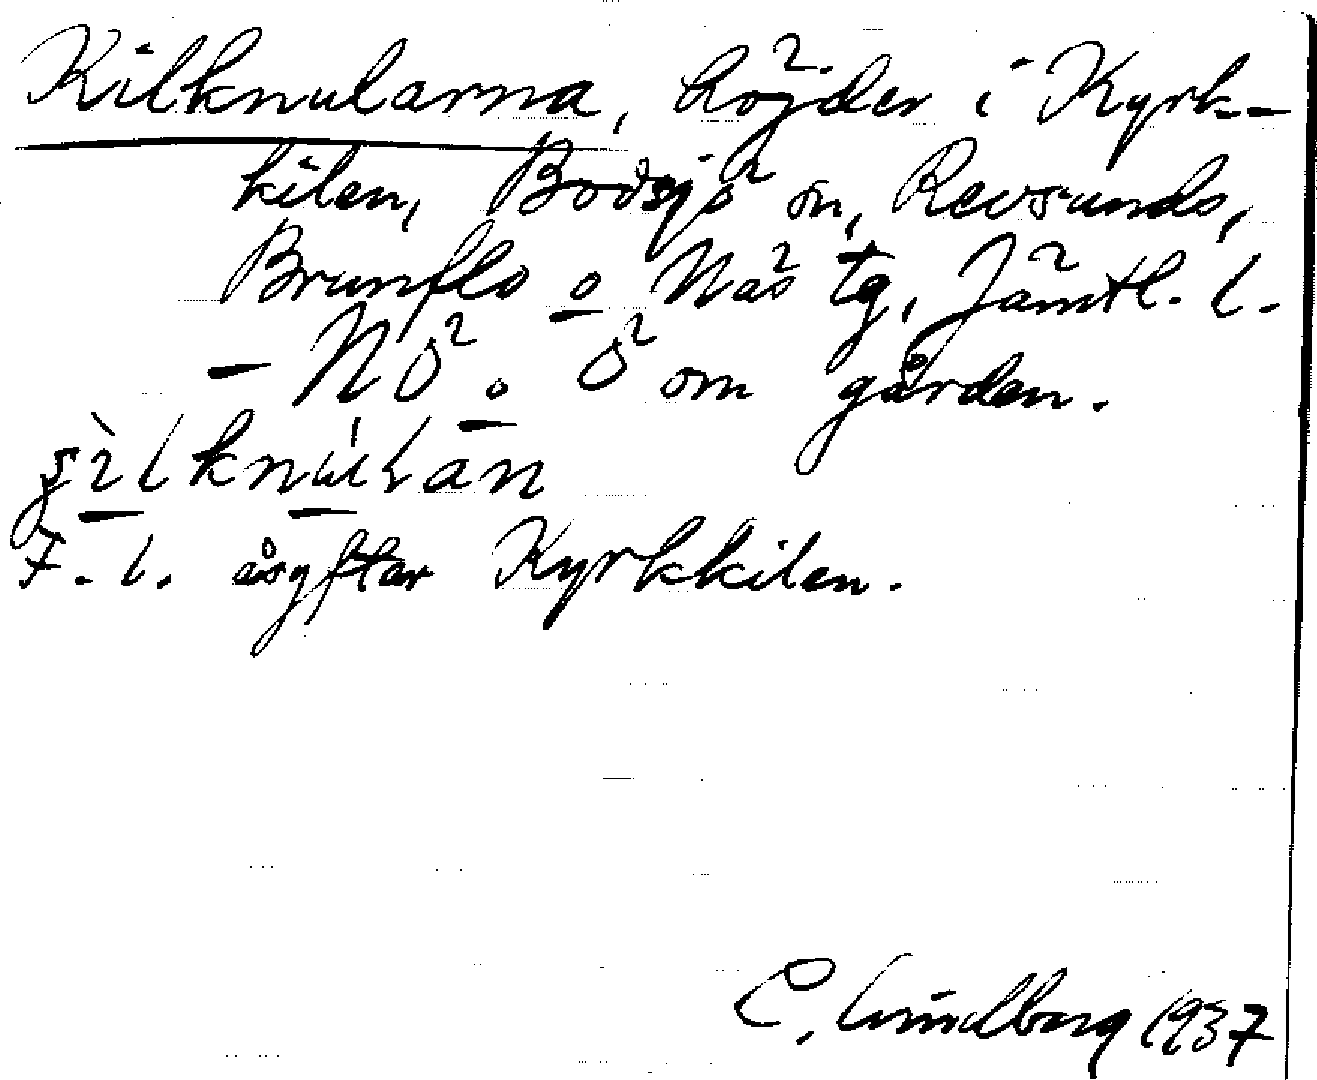 Kilknularna, höjder i Kyrk-
kilen, Bodsjö sn, Revsunds,
Brunflo o Näs tg, Jämtl. l.
- NÖ o Ö om gården.
F. l. åsyftar Kyrkkilen.
C. Lindberg 1937